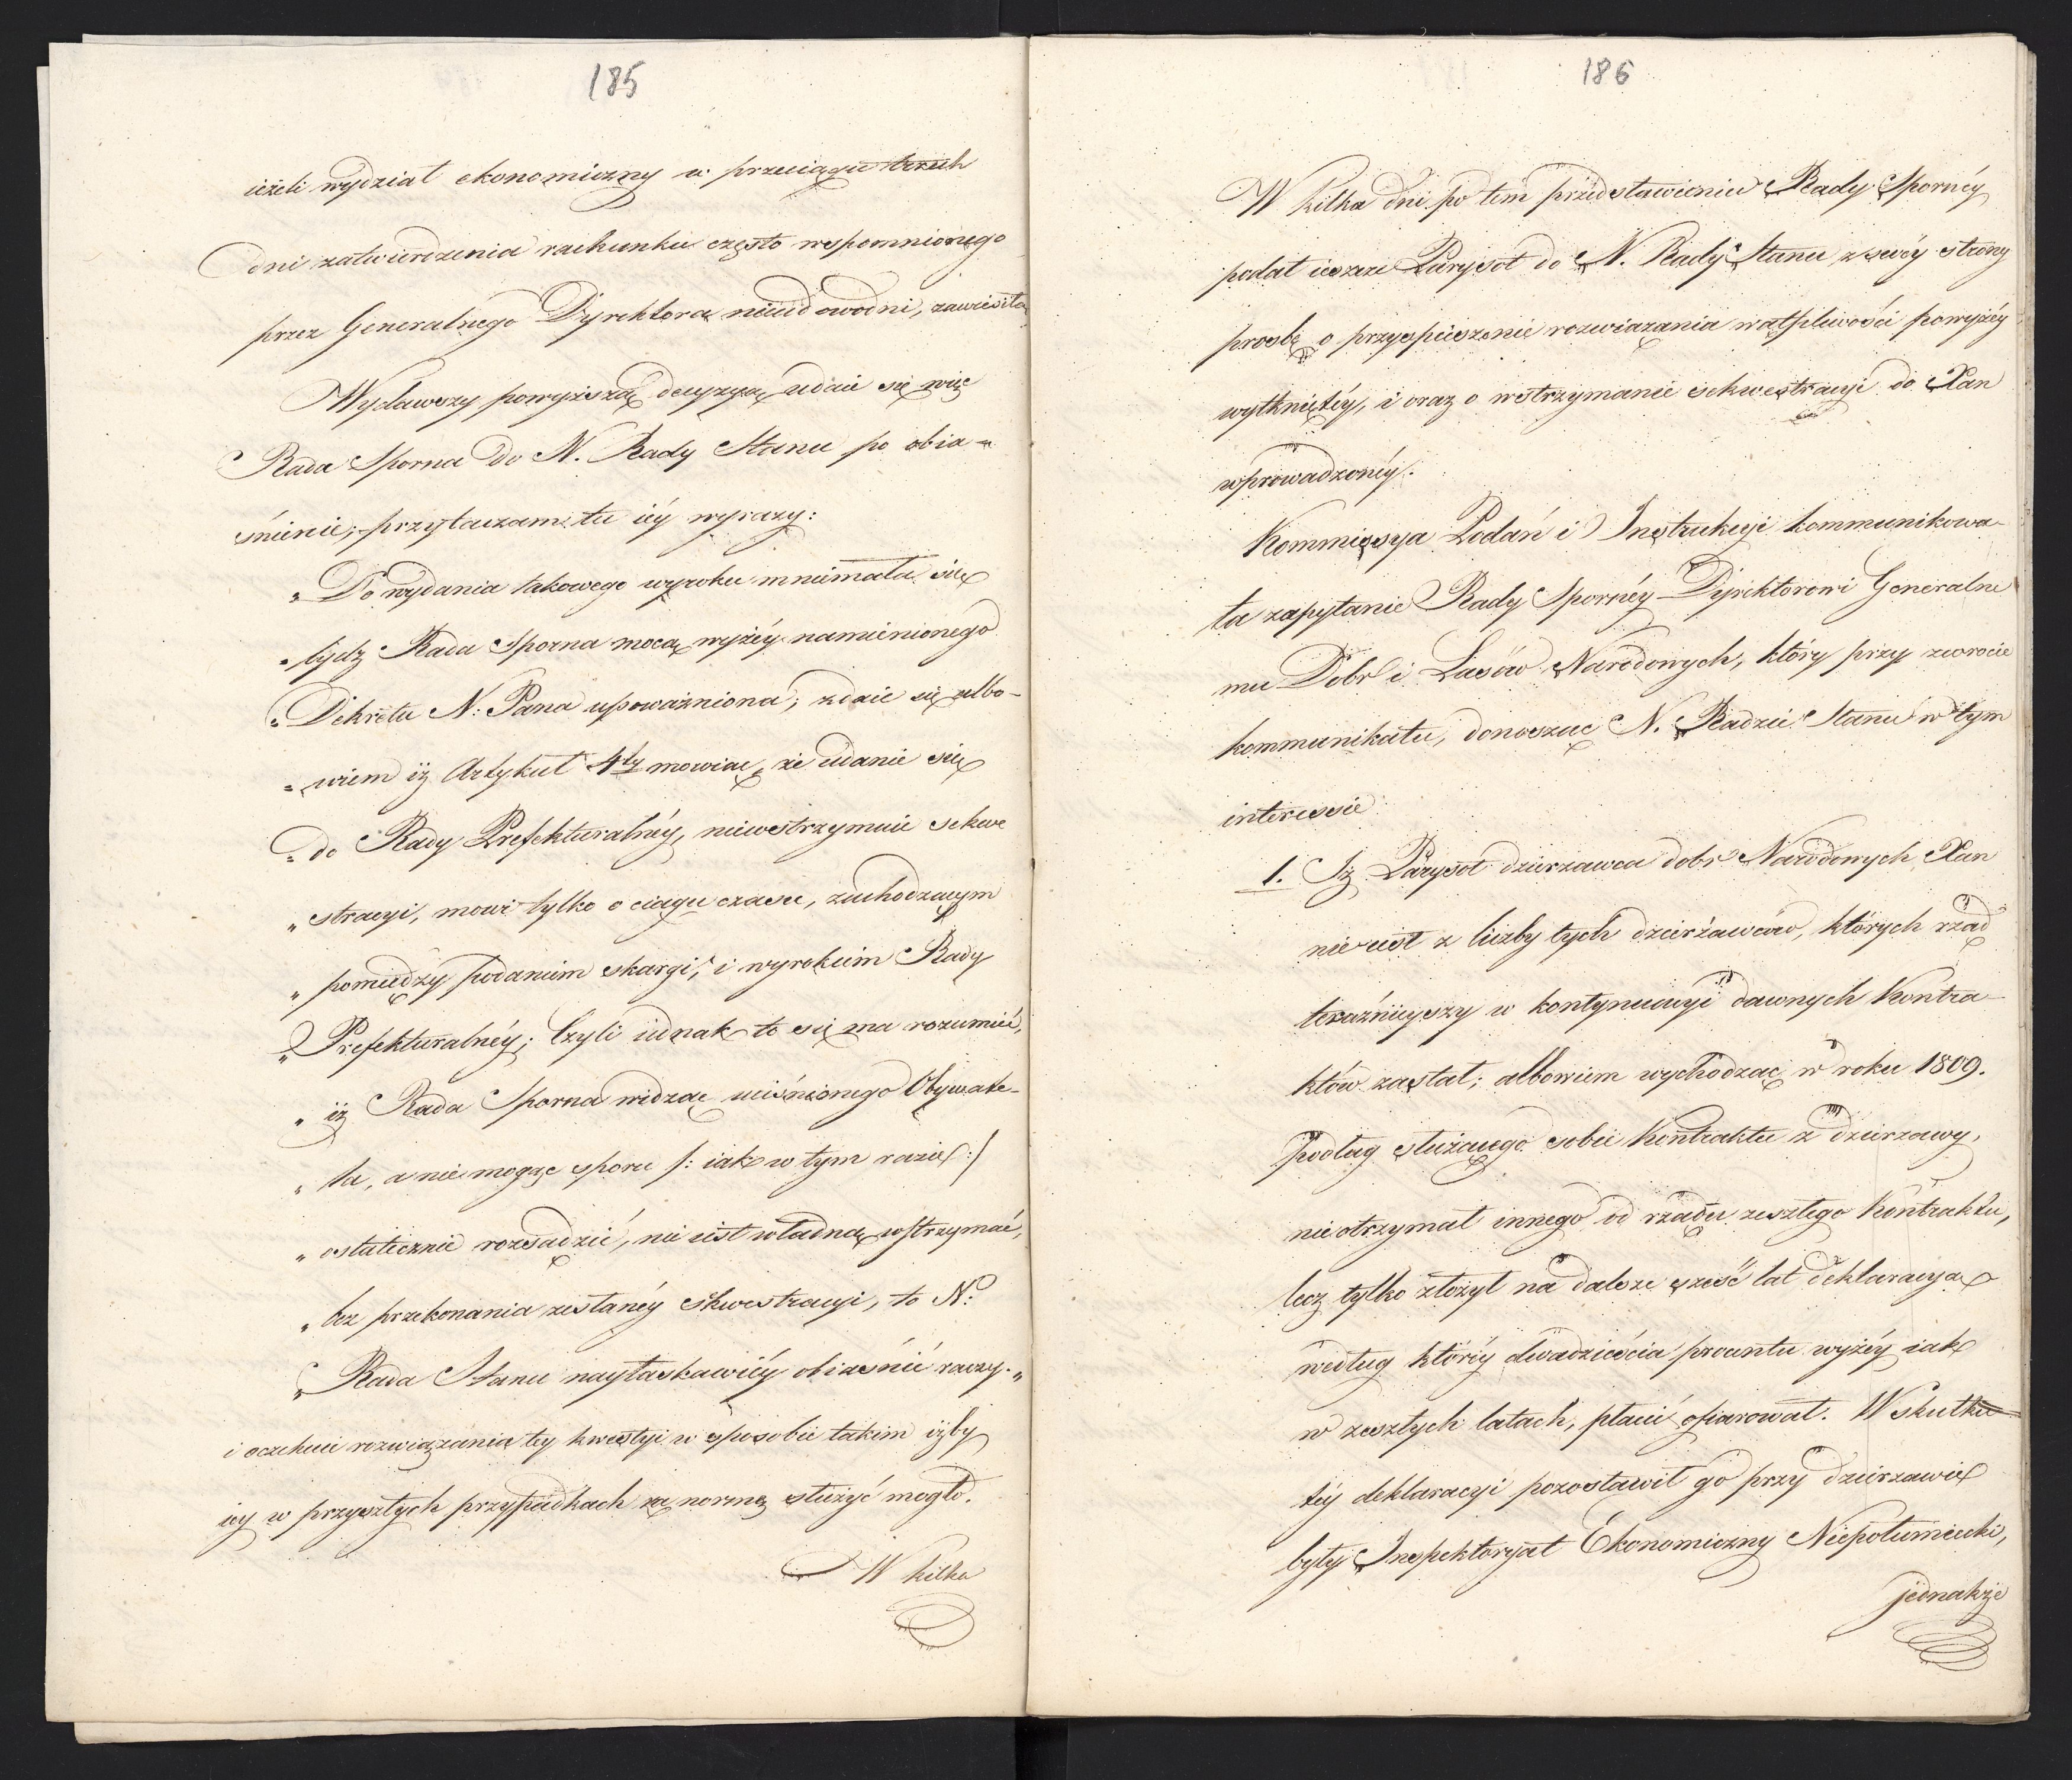 185
ieżeli wydział ekonomiczny w przeciągu trzech
dni zatwierdzenia rachunku często wspomnionego
przez Generalnego Dyrektora nieudowodni, zawiesiła
Wydawszy powyższą decyzyą udaie się więc
Rada Sporna do N. Rady Stanu po obia-
śnienie; przytaczam tu iéy wyrazy:
„Do wydania takowego wyroku mniemała się
„bydź Rada Sporna mocą wyżéy namienionego
„Dekretu N: Pana upoważniona; zdaie się albo-
„wiem iż Artykuł 4ty mowiąc, że udanie się
„do Rady Prefekturalnéy, niewstrzymuie sekwe
„stracyi, mowi tylko o ciągu czasu, zachodzącym
„pomiędzy podaniem skargi, i wyrokiem Rady
„Prefekturalnéy; Czyli iednak to się ma rozumieć,
„iż Rada Sporna widząc uciśnionego Obywate-
„la, a nie mogąc sporu /: iak w tym razie :/
„ostatecznie rozsądzić, nie iest władną wstrzymać,
„bez przekonania zesłanéy sekwestracyi, to N:
„Rada Stanu nayłaskawiéy obiaśnić raczy.„
i oczekuie rozwiązania tey kwestyi w sposobie takim iżby
iey w przyszłych przypadkach za normę służyć mogło.
W kilka
186
W kilka dni po tem przedstawieniu Rady Spornéy
podał ieszcze Parysot do N. Rady Stanu z swéy strony
prosbę o przyspieszenie rozwiązania wątpliwości powyżéy
wytkniętéy, i oraz o wstrzymanie sekwestracyi do Xan
wprowadzonéy.
Kommissya Podań i Instrukcyi kommunikowa-
ła zapytanie Rady Spornéy Dyrektorowi Generalne
mu Dobr i Lasów Narodowych, który przy zwrocie
kommunikatu, donosząc N. Radzie Stanu w tym
interessie
1. Iż Parysot dzierzawca dobr Narodowych Xan
nie iest z liczby tych dzierżawców, których rząd
teraźnieyszy w kontynuacyi dawnych Kontra-
któw zastał; albowiem wychodząc w roku 1809.
podług służącego sobie Kontraktu z dzierzawy,
nie otrzymał innego od rządu zeszłego Kontraktu,
lecz tylko złożył na dalsze sześć lat deklaracyą
według któréy dwadzieścia procentu wyżéy iak
w zeszłych latach, płacić ofiarował. W skutku
téy deklaracyi pozostawił go przy dzierzawie
były Inspektoryat Ekonomiczny Niepołomiecki,
jednakże